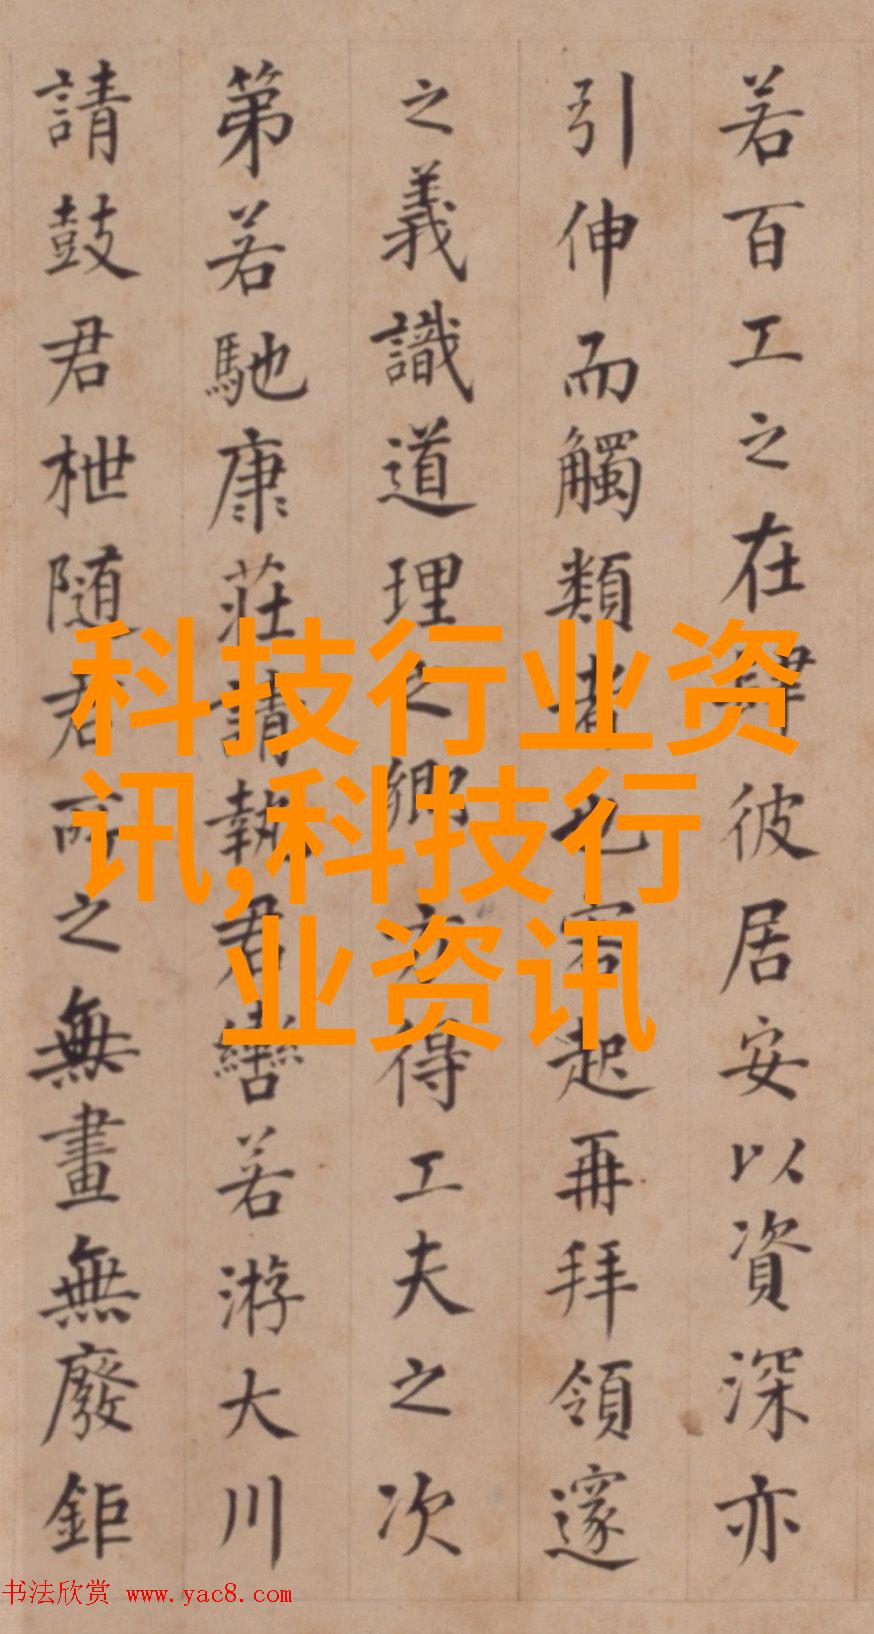 若百工之在肆彼居安以資深亦
引伸而觸類者也客起再拜領邃
之義識道理之鄉方得工夫之次
第若馳康莊請執君轡若游大川
請鼓君枻随君所之無畫無廢鉅
科技行业资
讯,科技行
业资讯
书法欣赏 www.yac8.com